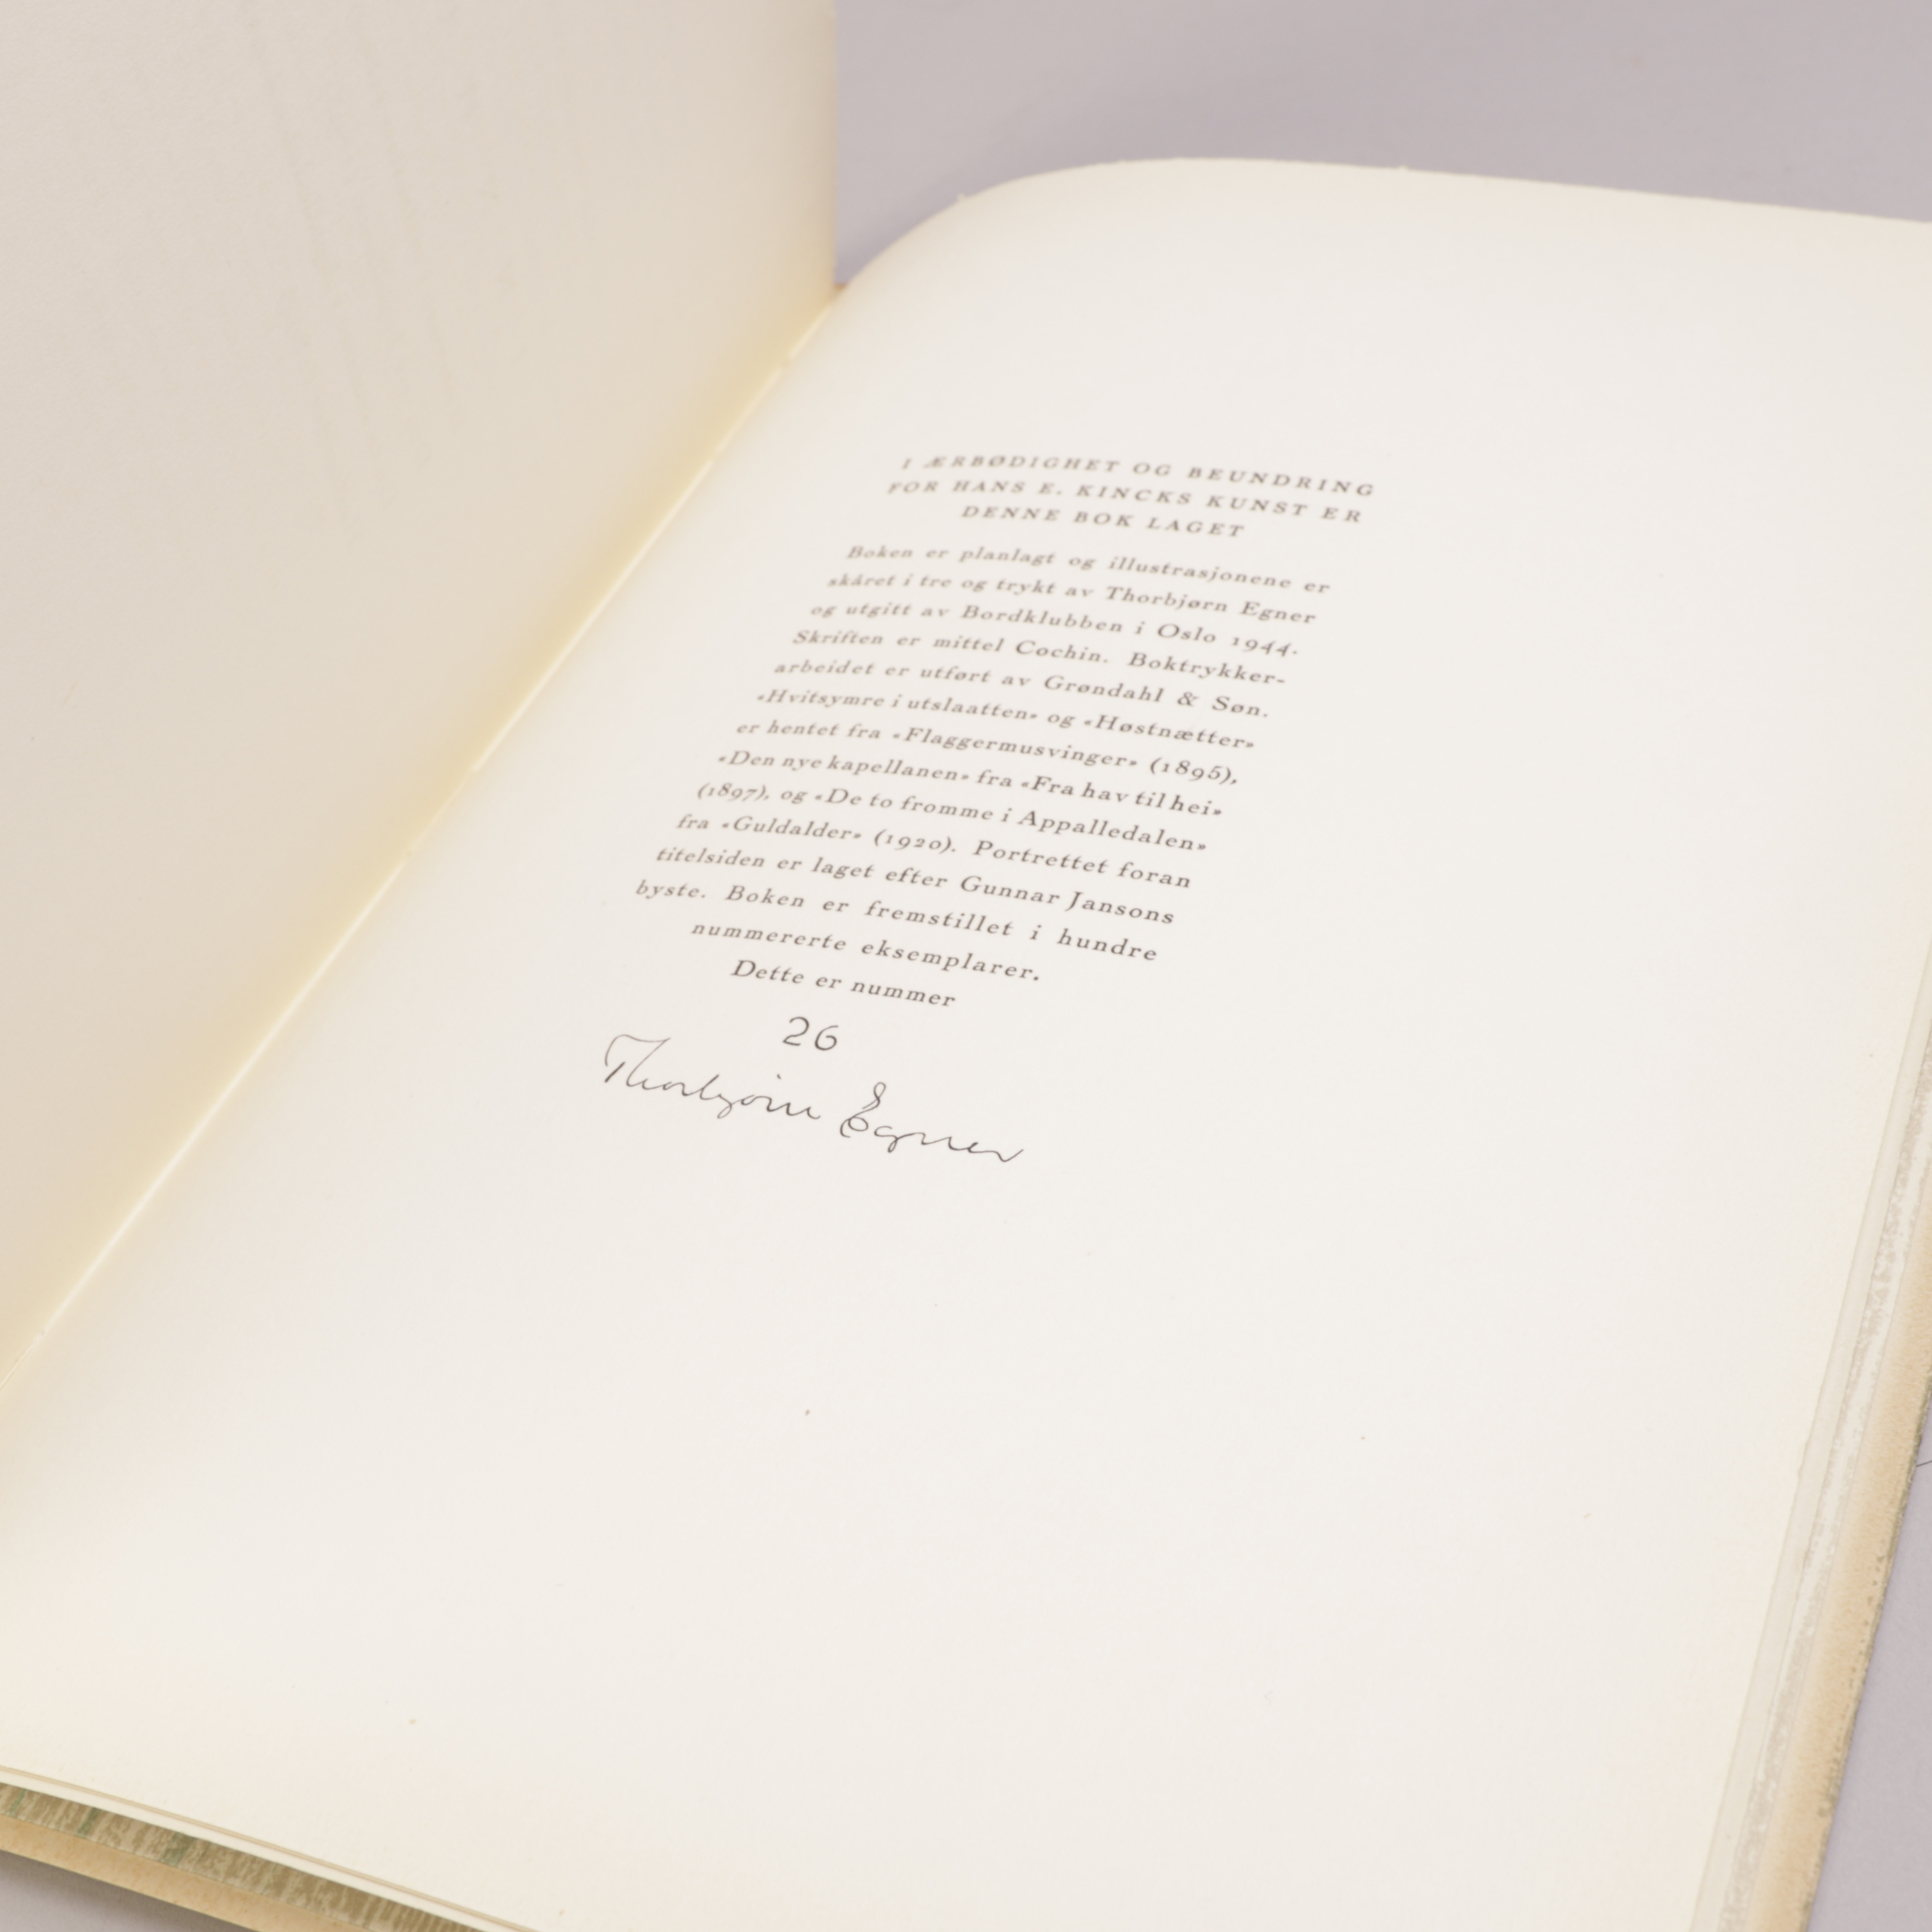 I ÆRBØDIGHET OG BEUNDRING
FOR HANS E. KINCKS KUNST ER
DENNE BOK LAGET
Boken er planlagt og illustrasjonene er
skåret i tre og trykt av Thorbjørn Egner
og utgitt av Bordklubben i Oslo 1944.
Skriften er mittel Cochin. Boktrykker-
arbeidet er utført av Grøndahl & Søn.
«Hvitsymre i utslaatten» og «Høstnætter»
er hentet fra «Flaggermusvinger» (1895),
«Den nye kapellanen» fra «Fra hav til hei»
(1897), og «De to fromme i Appalledalen»
fra «Guldalder» (1920). Portrettet foran
titelsiden er laget efter Gunnar Jansons
byste. Boken er fremstillet i hundre
nummererte eksemplarer.
Dette er nummer
26
Thorbjørn Egner